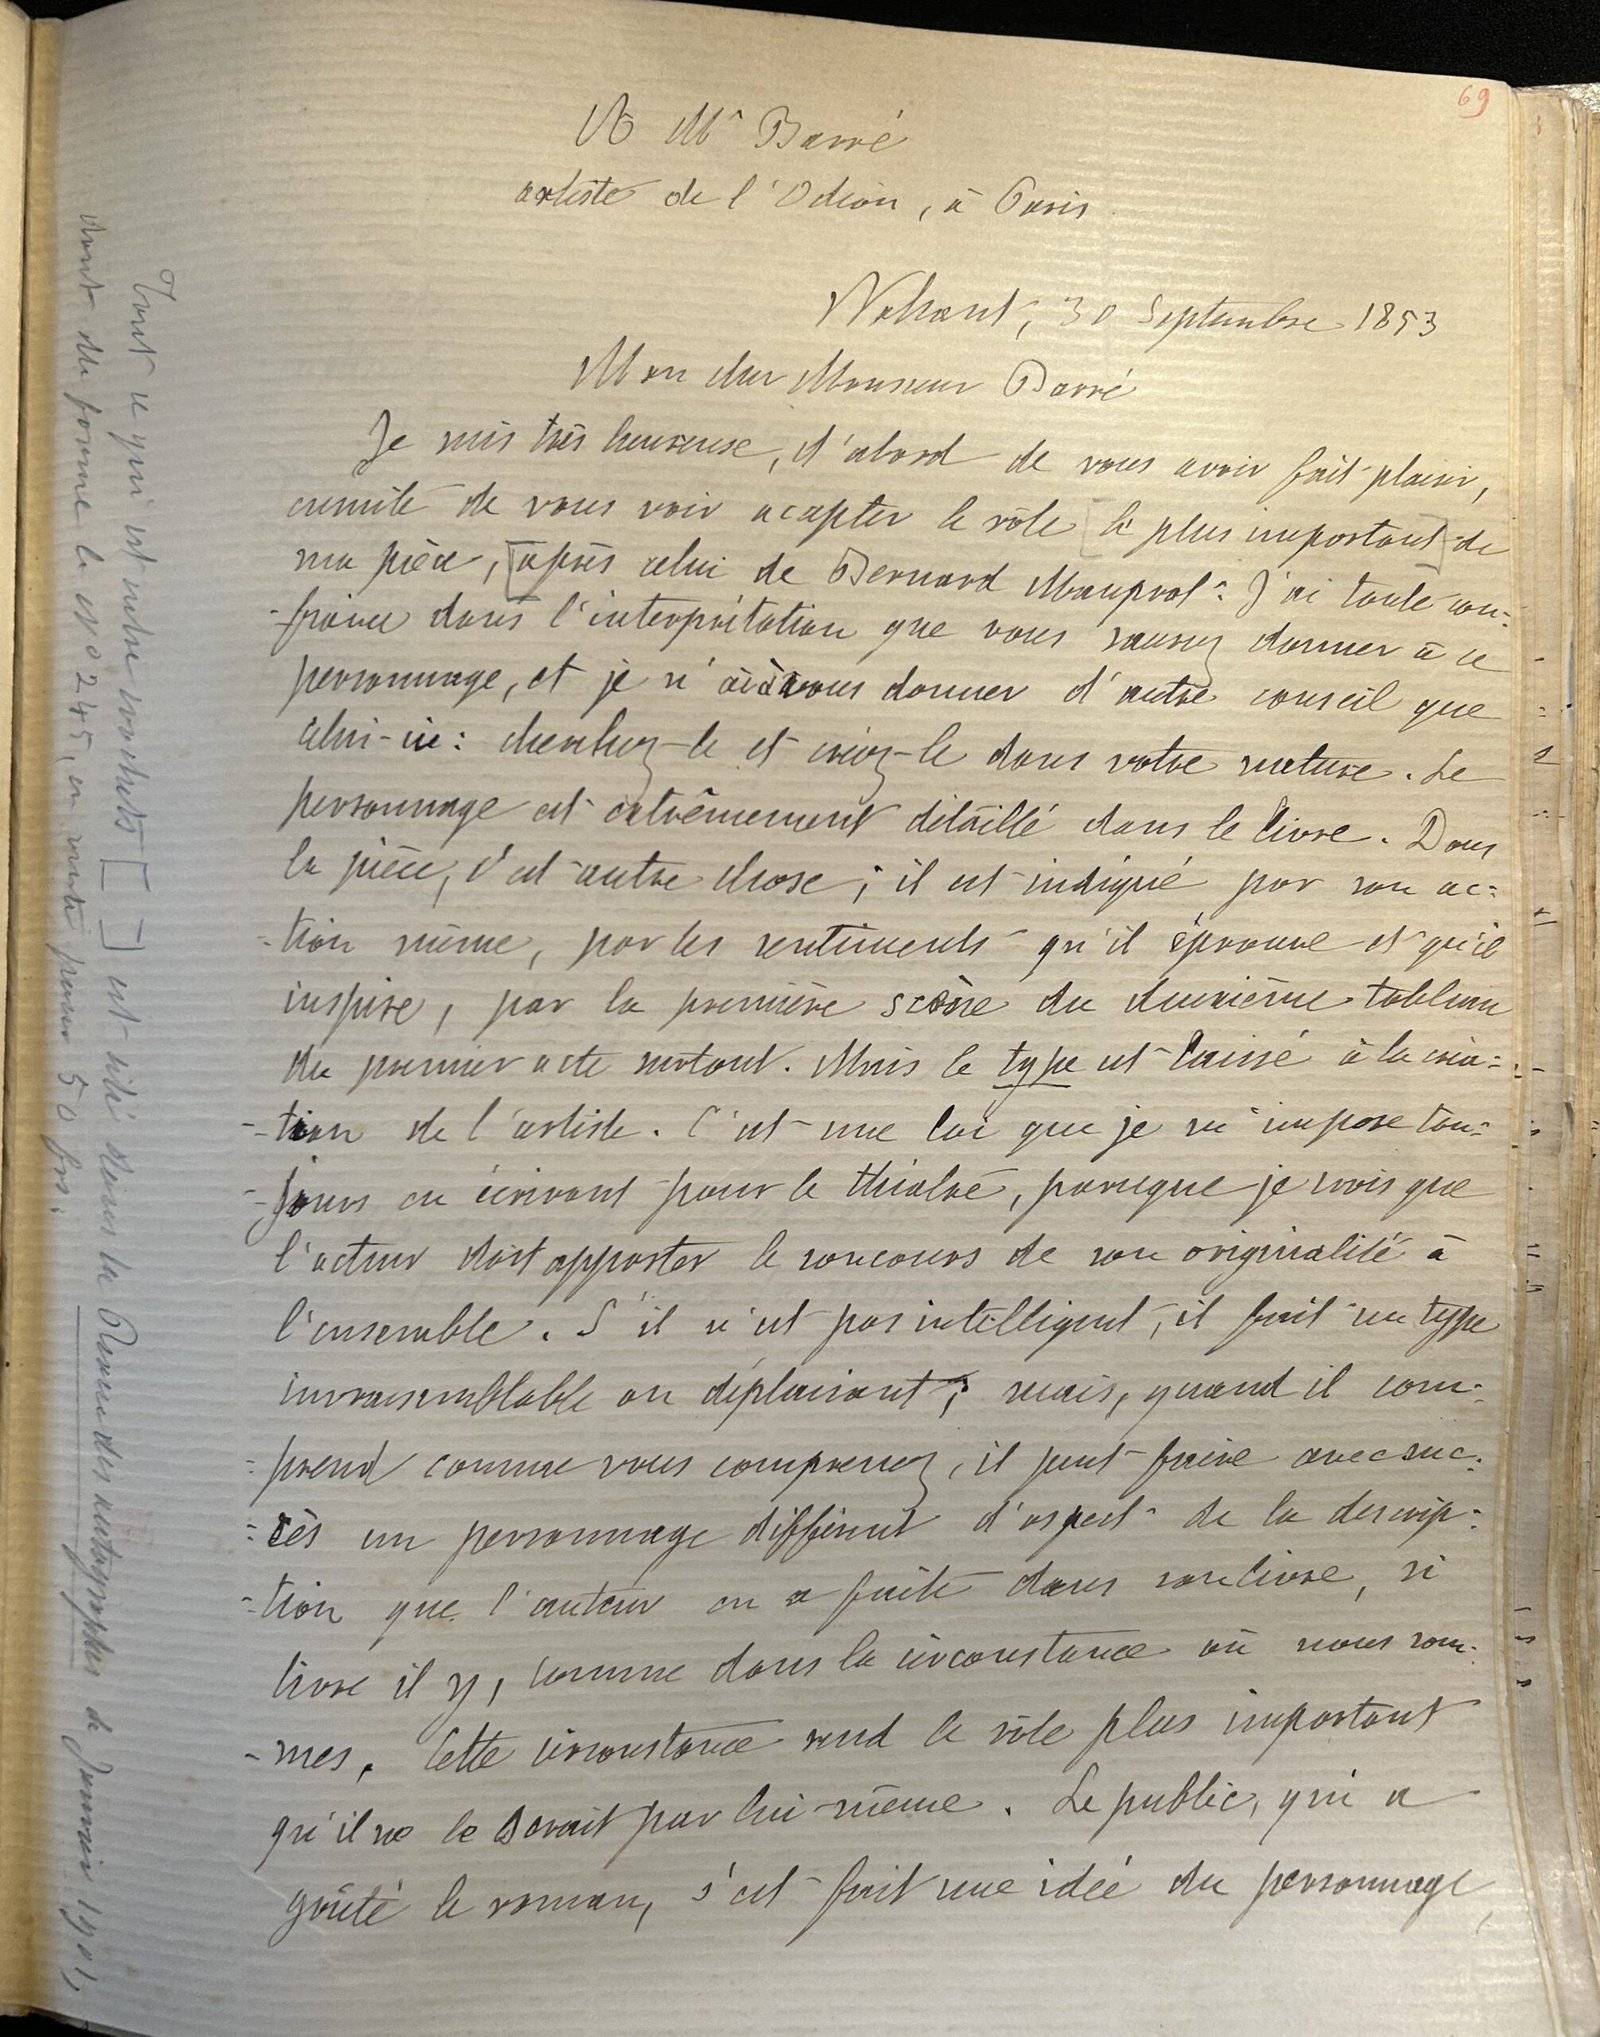 69
A Mr Barré
artiste de l'Odéon, à Paris
Nohant, 30 Septembre 1853
Mon cher Monsieur Barré
Je suis très heureuse, d'abord de vous avoir fait plaisir,
ensuite de vous voir accepter le rôle [le plus important] de
ma pièce, [après celui de Bernard Mauprat. J'ai toute con-
-fiance dans l'interprétation que vous saurez donner à ce
personnage, et je n'ai à vous donner d'autre conseil que
celui-ci: cherchez-le et créez-le dans votre nature. Le
personnage est extrêmement détaillé dans le livre. Dans
la pièce, c'est autre chose; il est indiqué par son ac-
-tion même, par les sentiments qu'il éprouve et qu'il
inspire, par la première scène du deuxième tableau
du premier acte surtout. Mais le type est laissé à la créa-
-tion de l'artiste. C'est une loi que je m'impose tou-
-jours en écrivant pour le théâtre, parceque je crois que
l'acteur doit apporter le concours de son originalité à
l'ensemble. S'il n'est pas intelligent, il fait un type
invraisemblable ou déplaisant; mais, quand il com-
-prend comme vous comprenez, il peut faire avec suc-
-cès un personnage différent d'aspect de la descrip-
-tion que l'auteur en a faite dans son livre, si
livre il y a, comme dans la circonstance où nous som-
-mes. Cette circonstance rend le rôle plus important
qu'il ne le serait par lui-même. Le public, qui a
goûté le roman, s'est fait une idée du personnage,
Tout ce qui est entre crochets [ ] est cité dans la Revue des autographes de Janvier 1901,
dont elle forme le nº 245, en vente pour 50 frs.